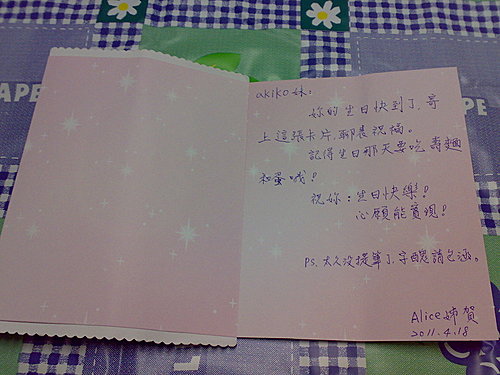 akiko妹:
妳的生日快到了,寄
上這張卡片,聊表祝福。
記得生日那天要吃壽麵
和蛋哦!
祝妳:生日快樂!
心願能實現!
PS.太久沒提筆了,字醜請包涵。
Alice姊賀
2011.4.18
APE
PE